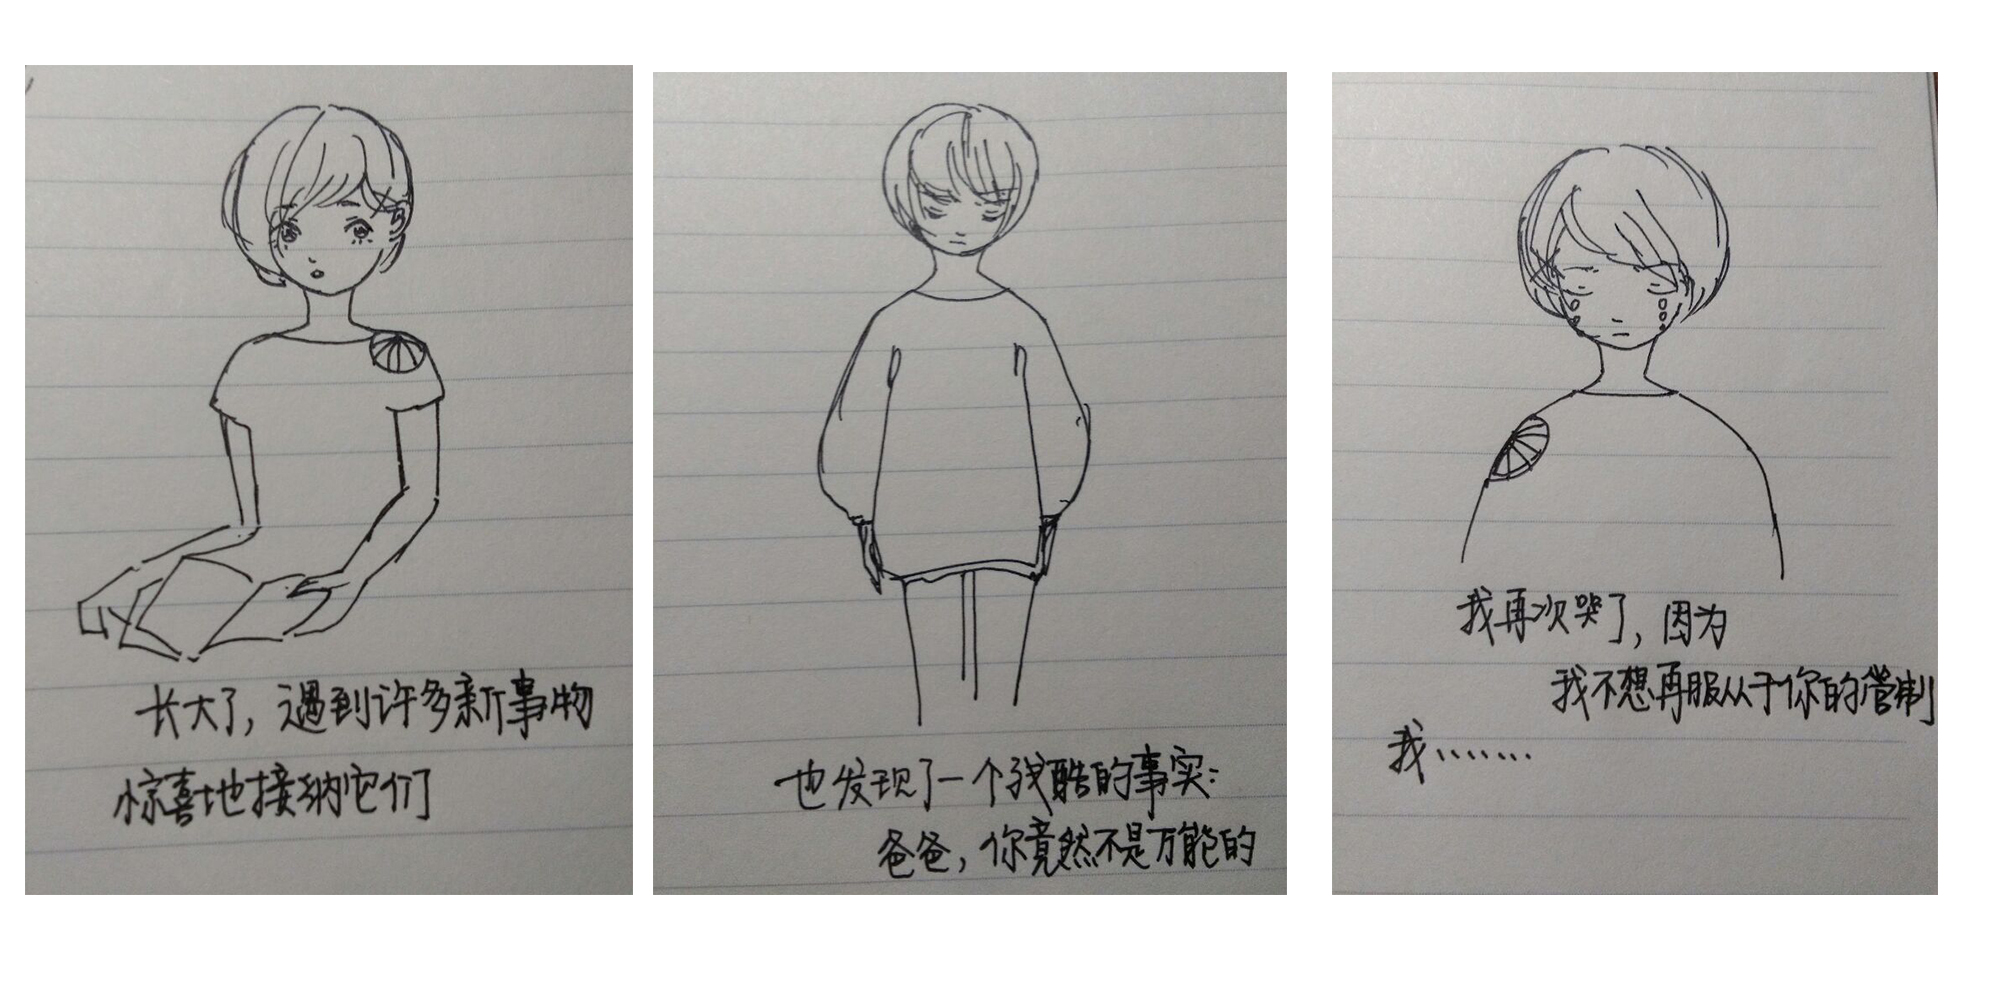 长大了，遇到许多新事物
惊喜地接纳它们
也发现了一个残酷的事实：
爸爸，你竟然不是万能的
我再次哭了，因为
我不想再服从于你的管制
我.......